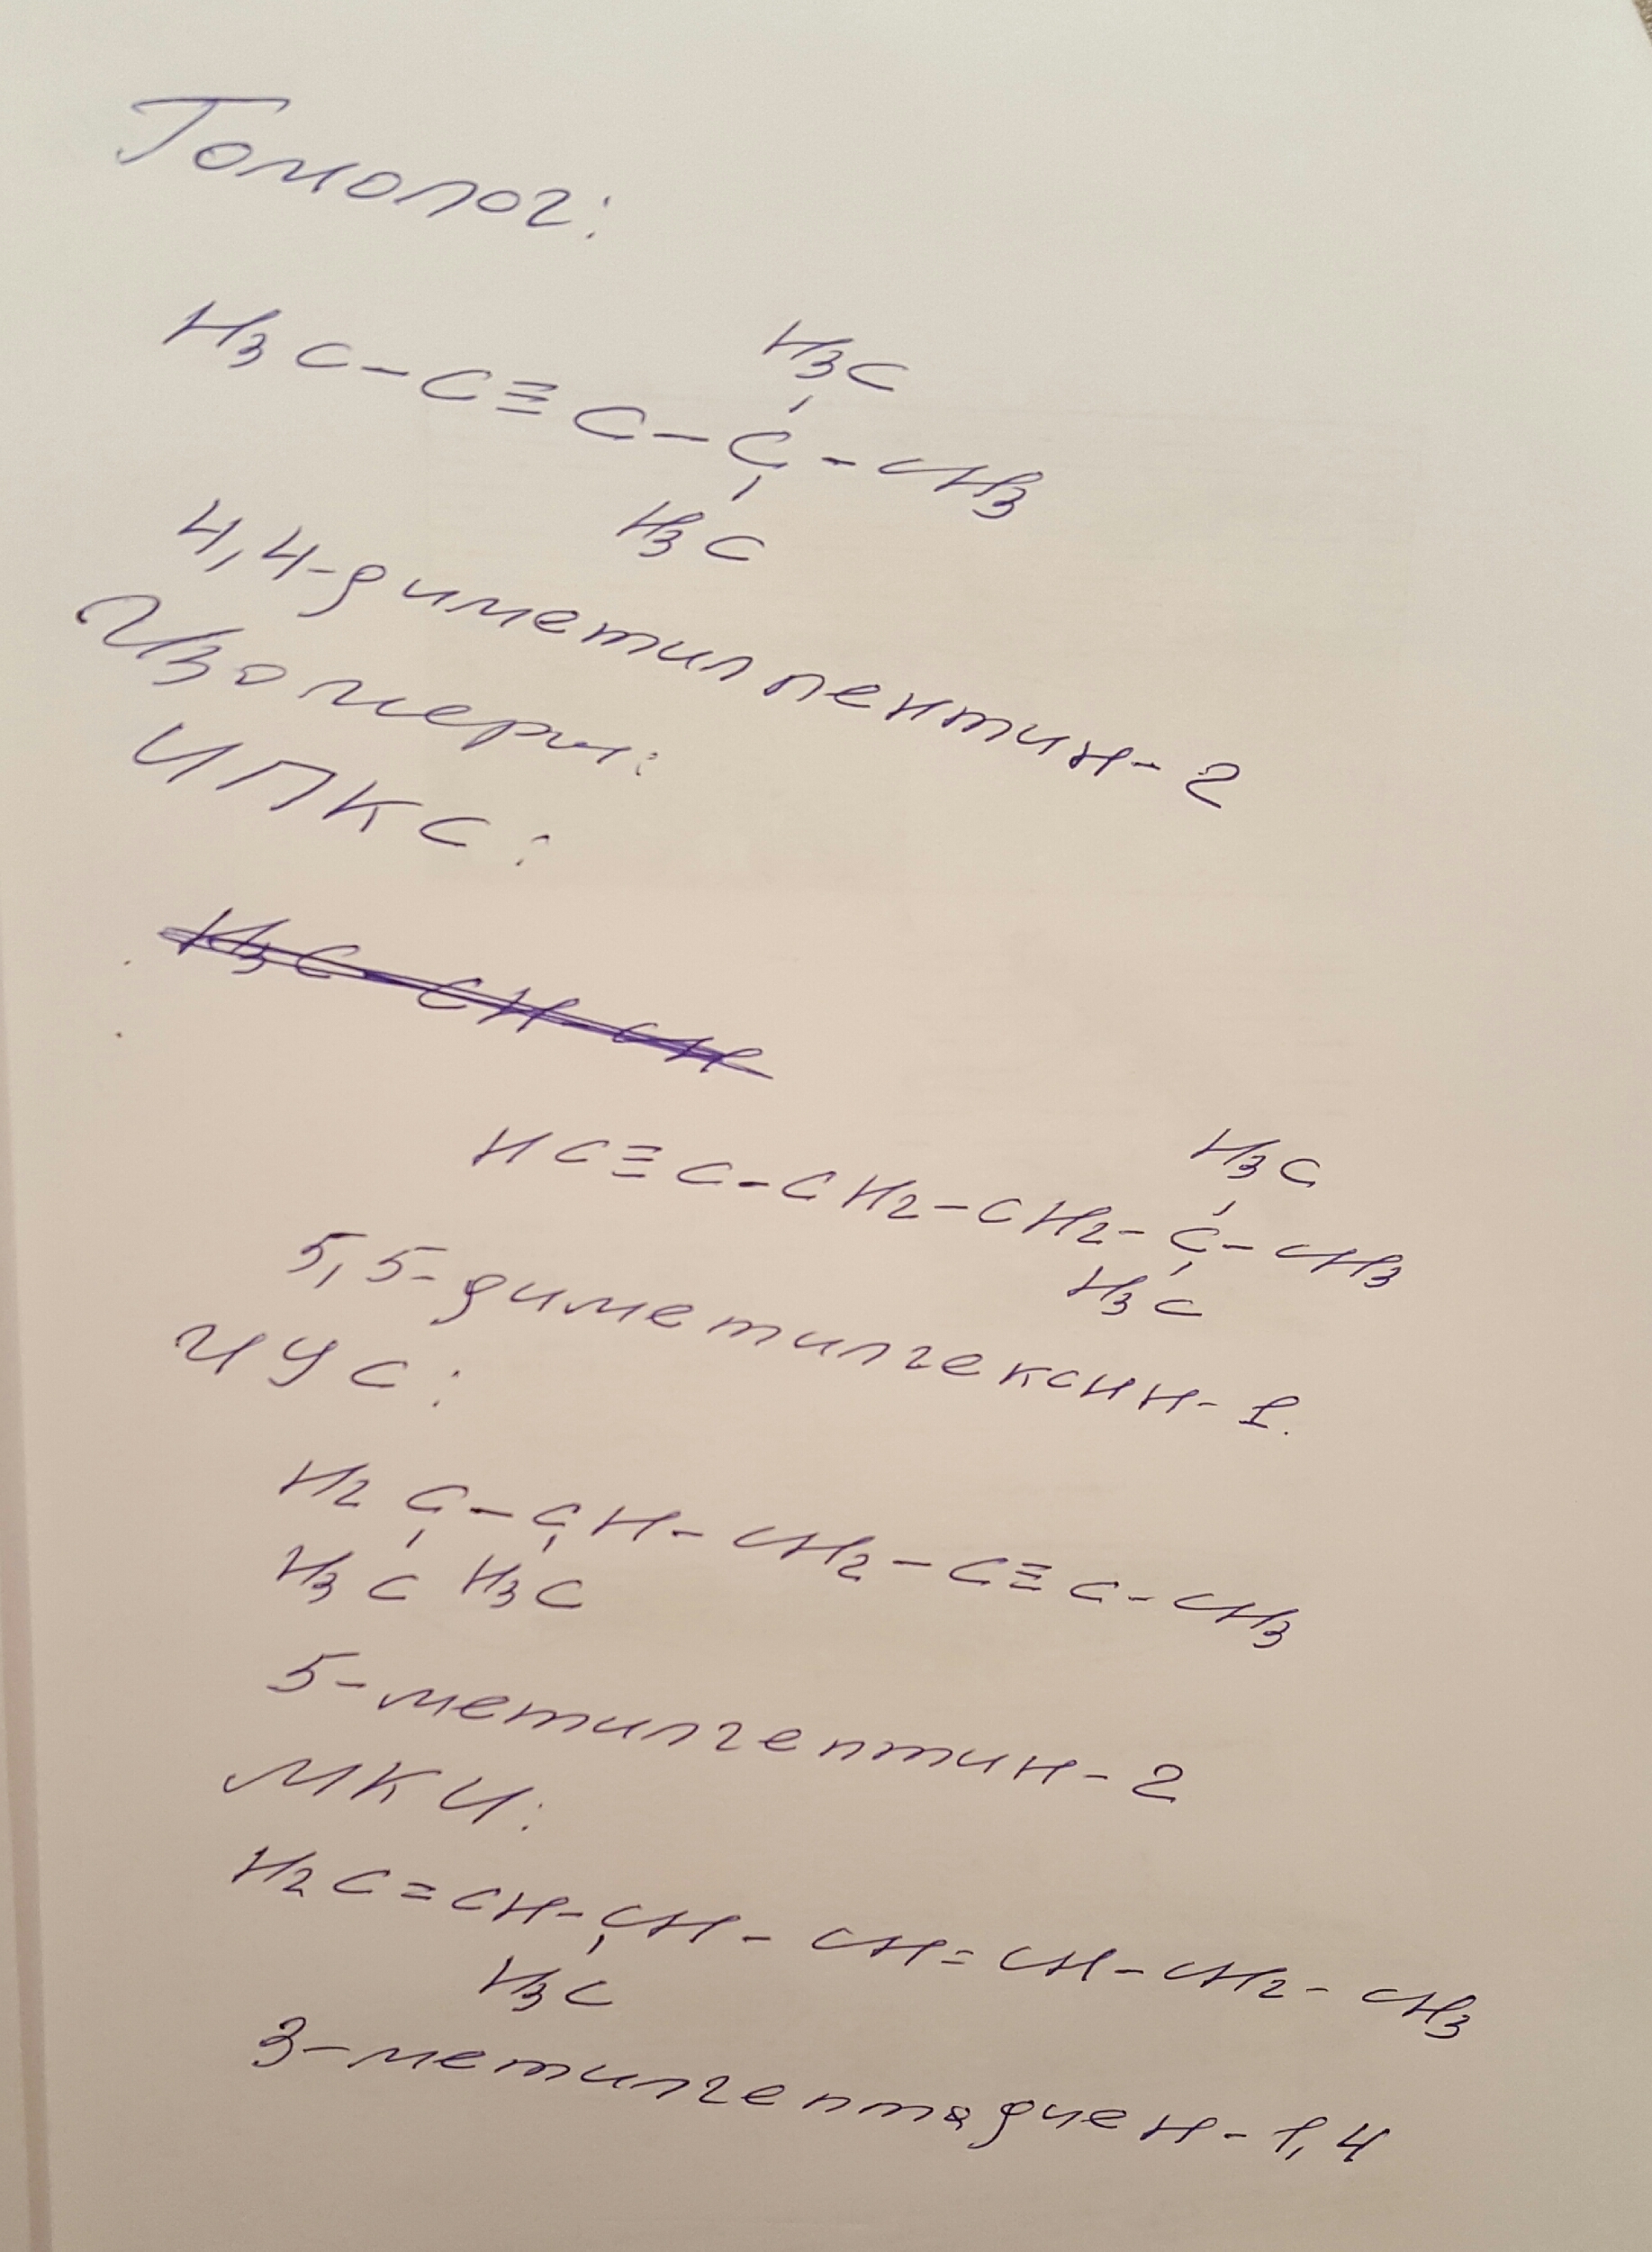 Гомолог:
H3C
H3C-C≡C-C-CH3
H3C
4,4-диметилпентин-2
Изомеры:
ИПКС:
H3C-CH-CH
H3C
HC≡C-CH2-CH2-C-CH3
H3C
5,5-диметилгексин-1.
ИУС:
H2C-CH-CH2-C≡C-CH3
H3C H3C
5-метилгептин-2
МКИ:
H2C=CH-CH-CH=CH-CH2-CH3
H3C
3-метилгептадиен-1,4